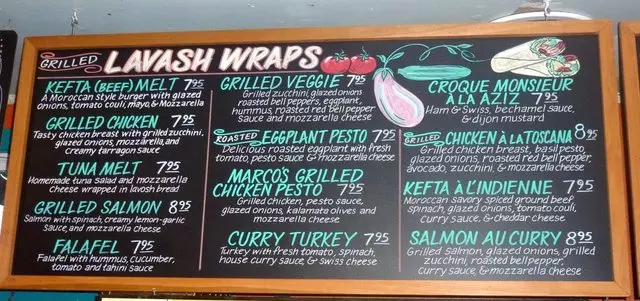 GRILLED LAVASH WRAPS
KEFTA (BEEF) MELT 7.95
A Moroccan style burger with glazed
onions, tomato couli, mayo, & Mozzarella
GRILLED CHICKEN 7.95
Tasty chicken breast with grilled zucchini,
glazed onions, mozzarella, and
creamy tarragon sauce
TUNA MELT 7.95
Homemade tuna salad and mozzarella
cheese wrapped in lavosh bread
GRILLED SALMON 8.95
Salmon with spinach, creamy lemon-garlic
sauce, and mozzarella
FALAFEL 7.95
Falafel with hummus, cucumber,
tomato and tahini sauce
GRILLED VEGGIE 7.95
Grilled zucchini, glazed onions
roasted bell peppers, eggplant,
hummus, roasted red bell pepper
sauce and mozzarella cheese
ROASTED EGGPLANT PESTO 7.95
Delicious roasted eggplant with fresh
tomato, pesto sauce & mozzarella cheese
MARCO'S GRILLED
CHICKEN PESTO 7.95
Grilled chicken, pesto sauce,
glazed onions, kalamata olives and
mozzarella cheese
CURRY TURKEY 7.95
Turkey with fresh tomato, spinach,
house curry sauce, & swiss cheese
CROQUE MONSIEUR
À LA AZIZ 7.95
Ham & Swiss, bechamel sauce,
& dijon mustard
GRILLED CHICKEN À LA TOSCANA 8.95
Grilled chicken breast, basil pesto,
glazed onions, roasted red bell pepper,
avocado, zucchini, & mozzarella cheese
KEFTA À L'INDIENNE 7.95
Moroccan savory spiced ground beef,
spinach, glazed onions, tomato couli,
curry sauce, & cheddar cheese
SALMON AU CURRY 8.95
Grilled salmon, glazed onions, grilled
zucchini, roasted bell pepper,
curry sauce, & mozzarella cheese